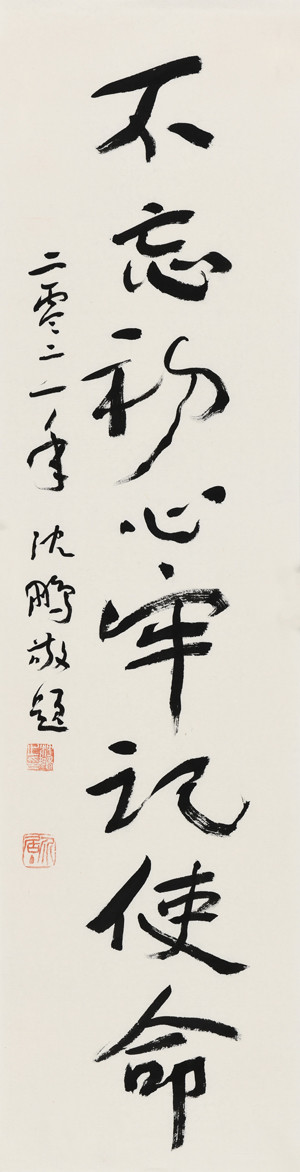 不忘初心牢记使命
二零二一年 沈鹏敬题